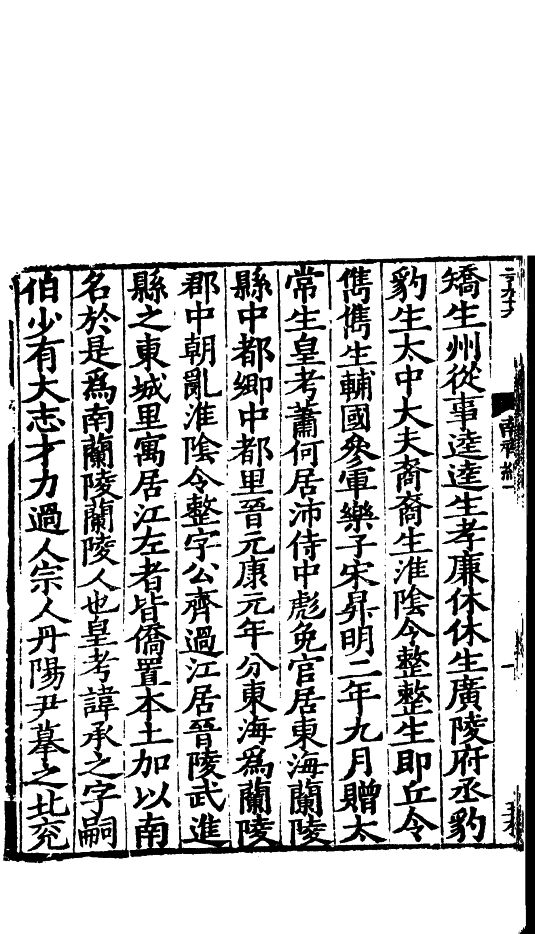 南齊紀一
矯生州從事逵逵生孝廉休休生廣陵府丞豹
豹生太中大夫裔裔生淮陰令整整生即丘令
儁儁生輔國參軍樂子宋昇明二年九月贈太
常生皇考蕭何居沛侍中彪免官居東海蘭陵
縣中都鄉中都里晉元康元年分東海爲蘭陵
郡中朝亂淮陰令整字公齊過江居晉陵武進
縣之東城里寓居江左者皆僑置本土加以南
名於是爲南蘭陵蘭陵人也皇考諱承之字嗣
伯少有大志才力過人宗人丹陽尹摹之北兗